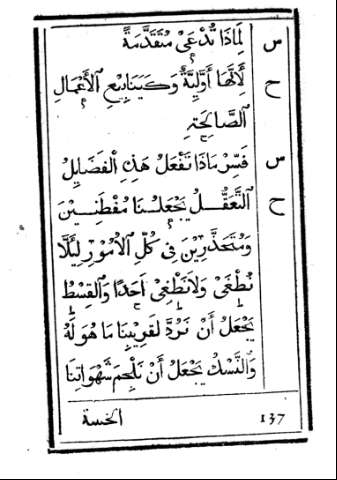 س لِمَاذَا تُدْعَىٰ مُتَقَدَّمَةً
ج لِأَنَّهَا أَوَّلِيَّةٌ وَكَيَنَابِيعِ الْأَعْمَالِ
الصَّالِحَةِ
س فَسِّرْ مَاذَا تَفْعَلُ هَذِهِ الْفَضَايِلُ
ج التَّعَقُّلُ يَجْعَلُنَا مُفْطَنِينَ
وَمُتَحَذِّرِينَ فِي كُلِّ الْأُمُورِ لِيَلَّا
نُطْغَىٰ وَلَا نُطْغِىٰ أَحَدًا وَالْقِسْطُ
يَجْعَلُ أَنْ نَرُدَّ لِقَرِيبِنَا مَا هُوَ لَهُ
وَالنُّسْكُ يَجْعَلُ أَنْ نُلْجِمَ شَهْوَاتِنَا
الخسة
137